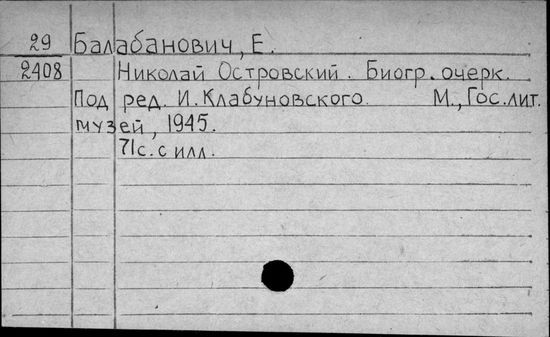 29 Балабанович, Е.
2408 Николай Островский. Биогр. очерк.
Под ред. И. Клабуновского. М., Гос. лит.
музей, 1945.
71с. с илл.